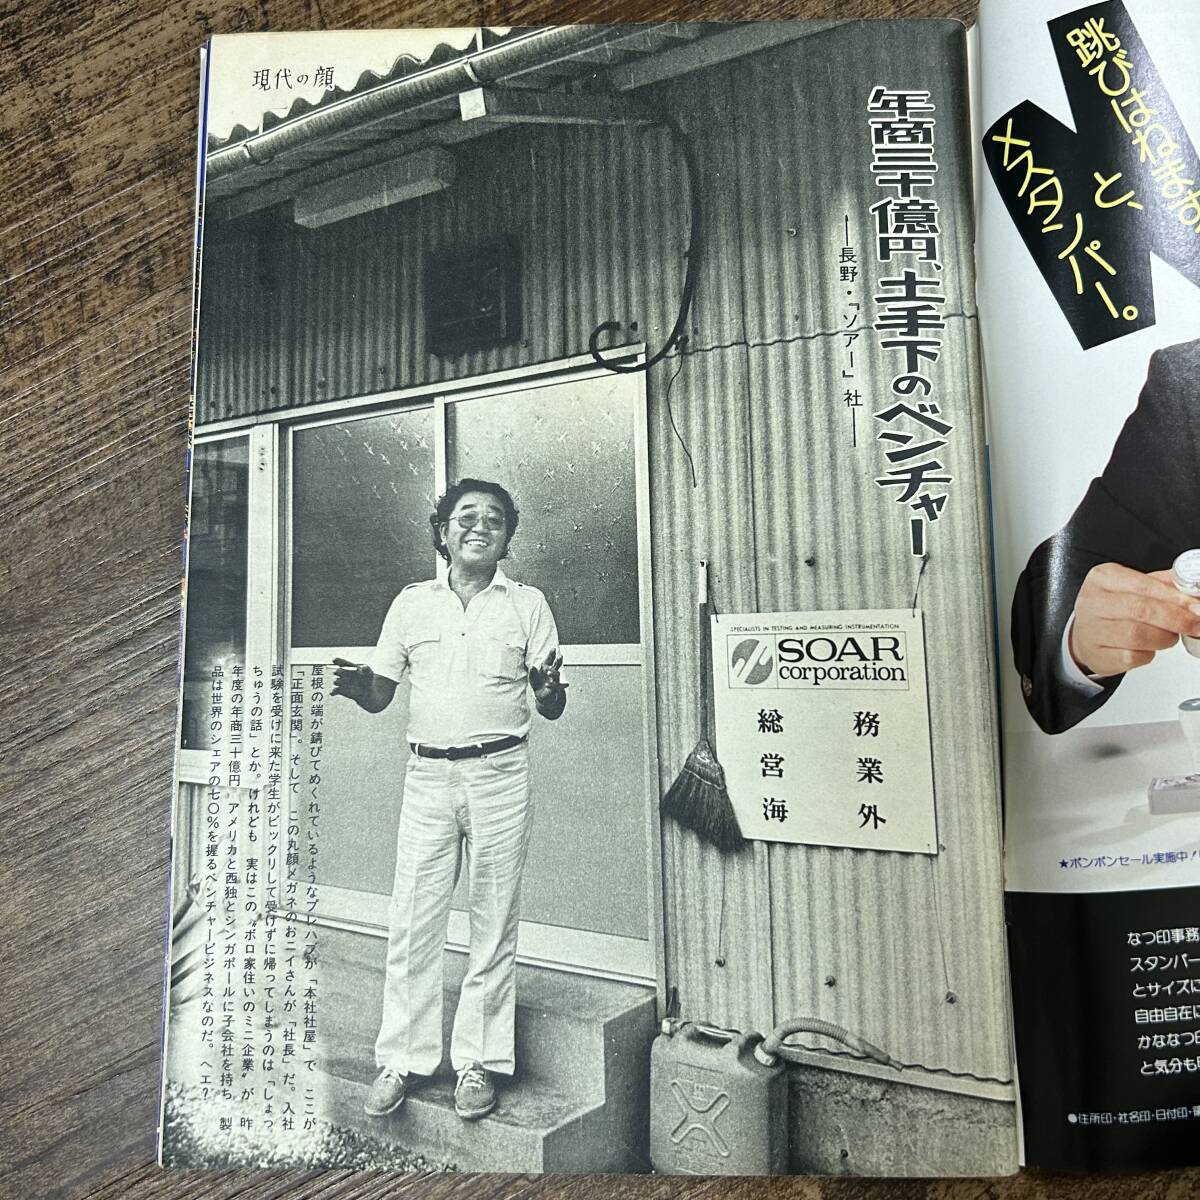 現代の顔
年商三十億円、土手下のベンチャー
―長野・「ソアー」社―
SPECIALISTS IN TESTING AND MEASURING INSTRUMENTATION
SOAR
corporation
総務
営業
海外
屋根の端が錆びてめくれているようなプレハブが「本社社屋」で ここが
「正面玄関」。そして この丸顔メガネのおニイさんが「社長」だ。入社
試験を受けに来た学生がビックリして受けずに帰ってしまうのは「しょっ
ちゅうの話」とか。けれども 実はこの〝ボロ家住いのミニ企業〟が 昨
年度の年商三十億円 アメリカと西独とシンガポールに子会社を持ち 製
品は世界のシェアの七〇％を握るベンチャービジネスなのだ。ヘエ？
跳びはねます
と、
Xスタンパー。
★ボンボンセール実施中！
なつ印事務
スタンパー
とサイズに
自由自在に
かななつ印
と気分も
●住所印・社名印・日付印・